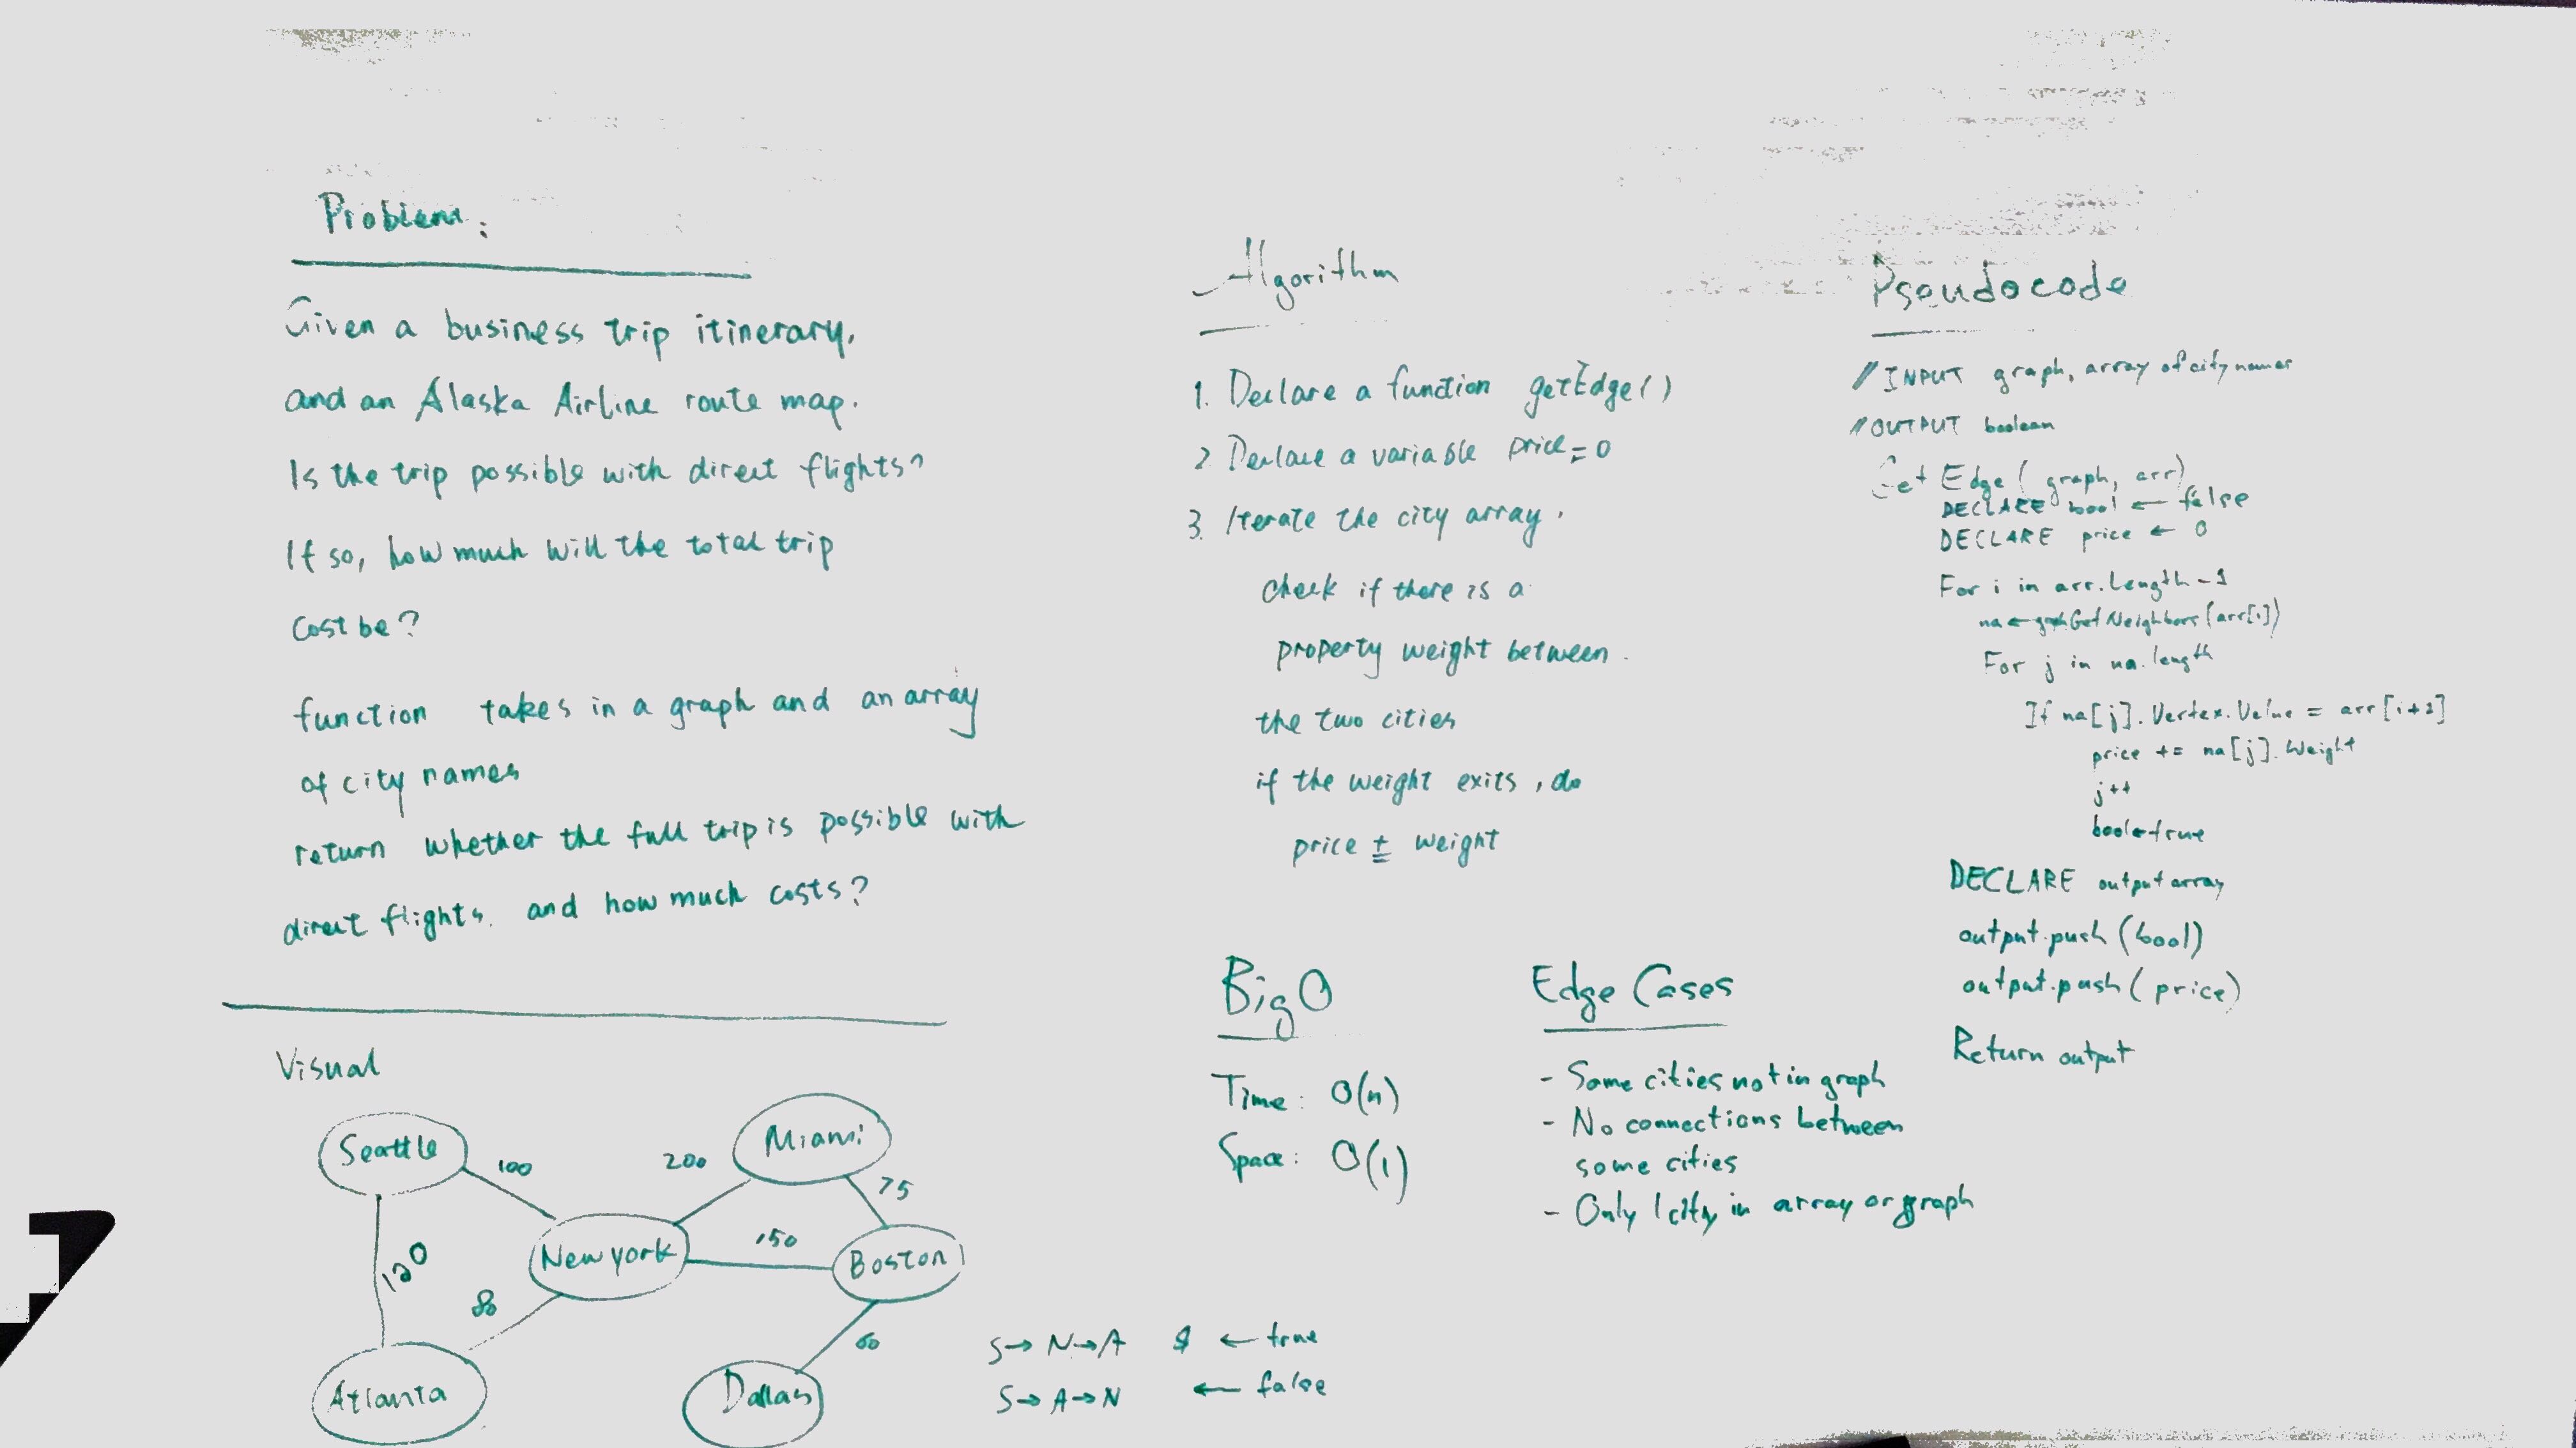 Problem:
Given a business trip itinerary,
and an Alaska Airline route map.
Is the trip possible with direct flights?
If so, how much will the total trip
cost be?
function takes in a graph and an array
of city names
return whether the full trip is possible with
direct flights. and how much costs?
Visual
Seattle
100
200
Miami
75
New york
150
Boston
120
80
60
Atlanta
Dallas
S→ N→A $ ← true
S→ A→N ← false
Algorithm
1. Declare a function getEdge()
2 Declare a variable price = 0
3. Iterate the city array.
check if there is a
property weight between.
the two cities
if the weight exits, do
price += weight
Big O
Time: O(n)
Space: O(1)
Edge Cases
- Some cities not in graph
- No connections between
some cities
- Only 1 city in array or graph
Pseudocode
// INPUT graph, array of city names
// OUTPUT boolean
Get Edge( graph, arr)
DECLARE bool ← false
DECLARE price ← 0
For i in arr.length -1
na ← Get Neighbors(arr[i])
For j in na.length
If na[j].Vertex.Value = arr[i+1]
price += na[j].Weight
j++
bool←true
DECLARE output array
output.push(bool)
output.push(price)
Return output